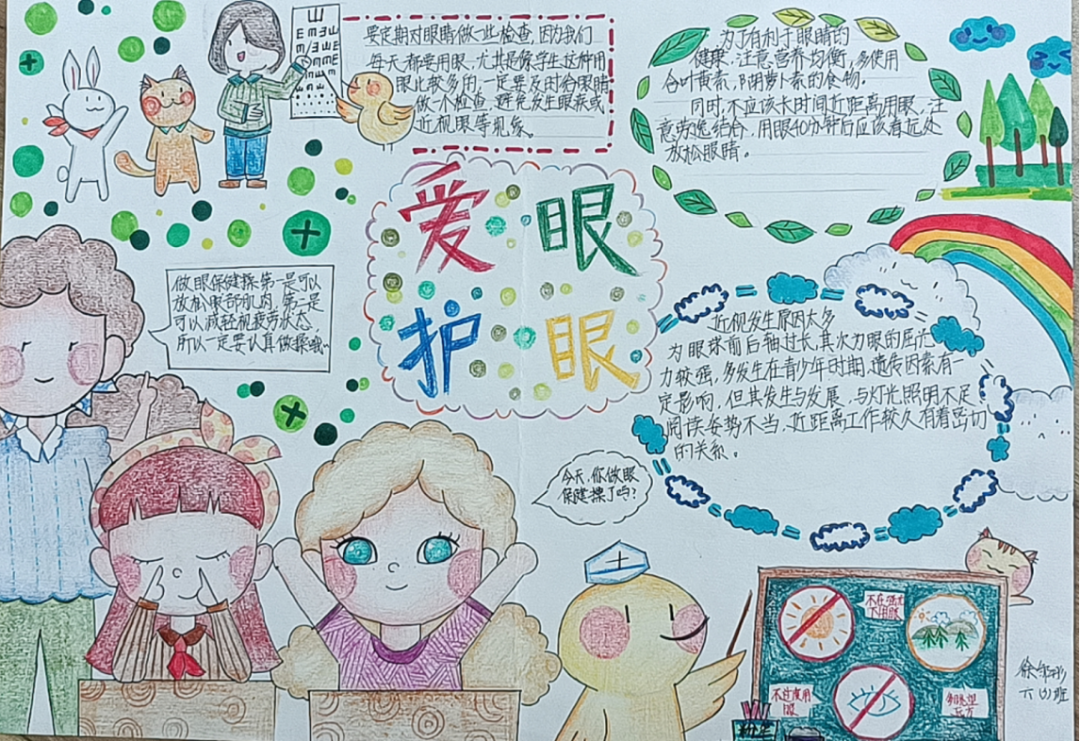 要定期对眼睛做一些检查,因为我们
每天都要用眼,尤其是像学生这种用
眼比较多的,一定要及时给眼睛
做一个检查,避免发生眼疾或
近视眼等现象。
为了有利于眼睛的
健康,注意营养均衡,多使用
含叶黄素,胡萝卜素的食物.
同时,不应该长时间近距离用眼,注
意劳逸结合,用眼40分钟后应该看远处
放松眼睛。
爱眼
护眼
做眼保健操第一是可以
放松眼部肌肉,第二是
可以减轻视疲劳状态,
所以一定要认真做操哦..
近视发生原因大多
为眼球前后轴过长,其次为眼的屈光
力较强,多发生在青少年时期,遗传因素有一
定影响,但其发生与发展,与灯光照明不足,
阅读姿势不当,近距离工作较久有着密切
的关系。
今天,你做眼
保健操了吗?
士
不在强光
下用眼
不过度用
眼
多眺望
远方
六(4)班